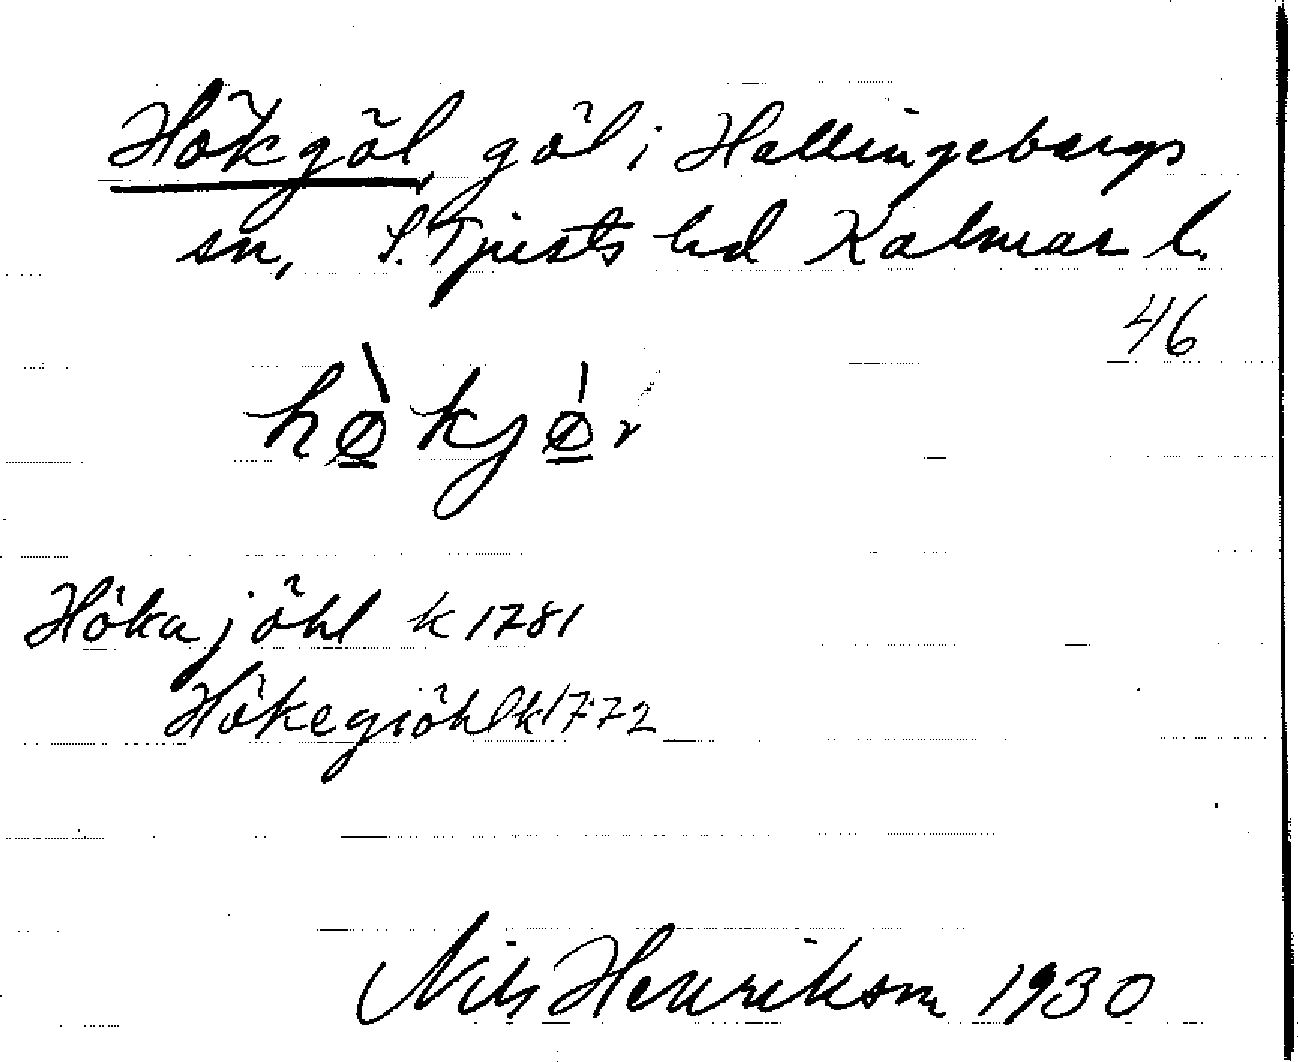 Hökgöl, göl i Hallingebergs
sn, S. Tjusts hd Kalmar l.
46
hø̠̀kjǿ̠r
Hökajöhl k 1781
Hökegiöhl k 1772
Nils Henrikson 1930